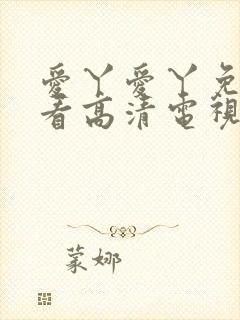 愛丫愛丫免
看高清電視
蒙娜